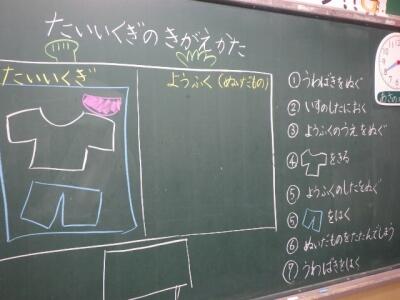 たいいくぎのきがえかた
たいいくぎ
ようふく(ぬいだもの)
①うわばきをぬぐ
②いすのしたにおく
③ようふくのうえをぬぐ
④をきる
⑤ようふくのしたをぬぐ
⑤をはく
⑥ぬいだものをたたんでしまう
⑦うわばきをはく